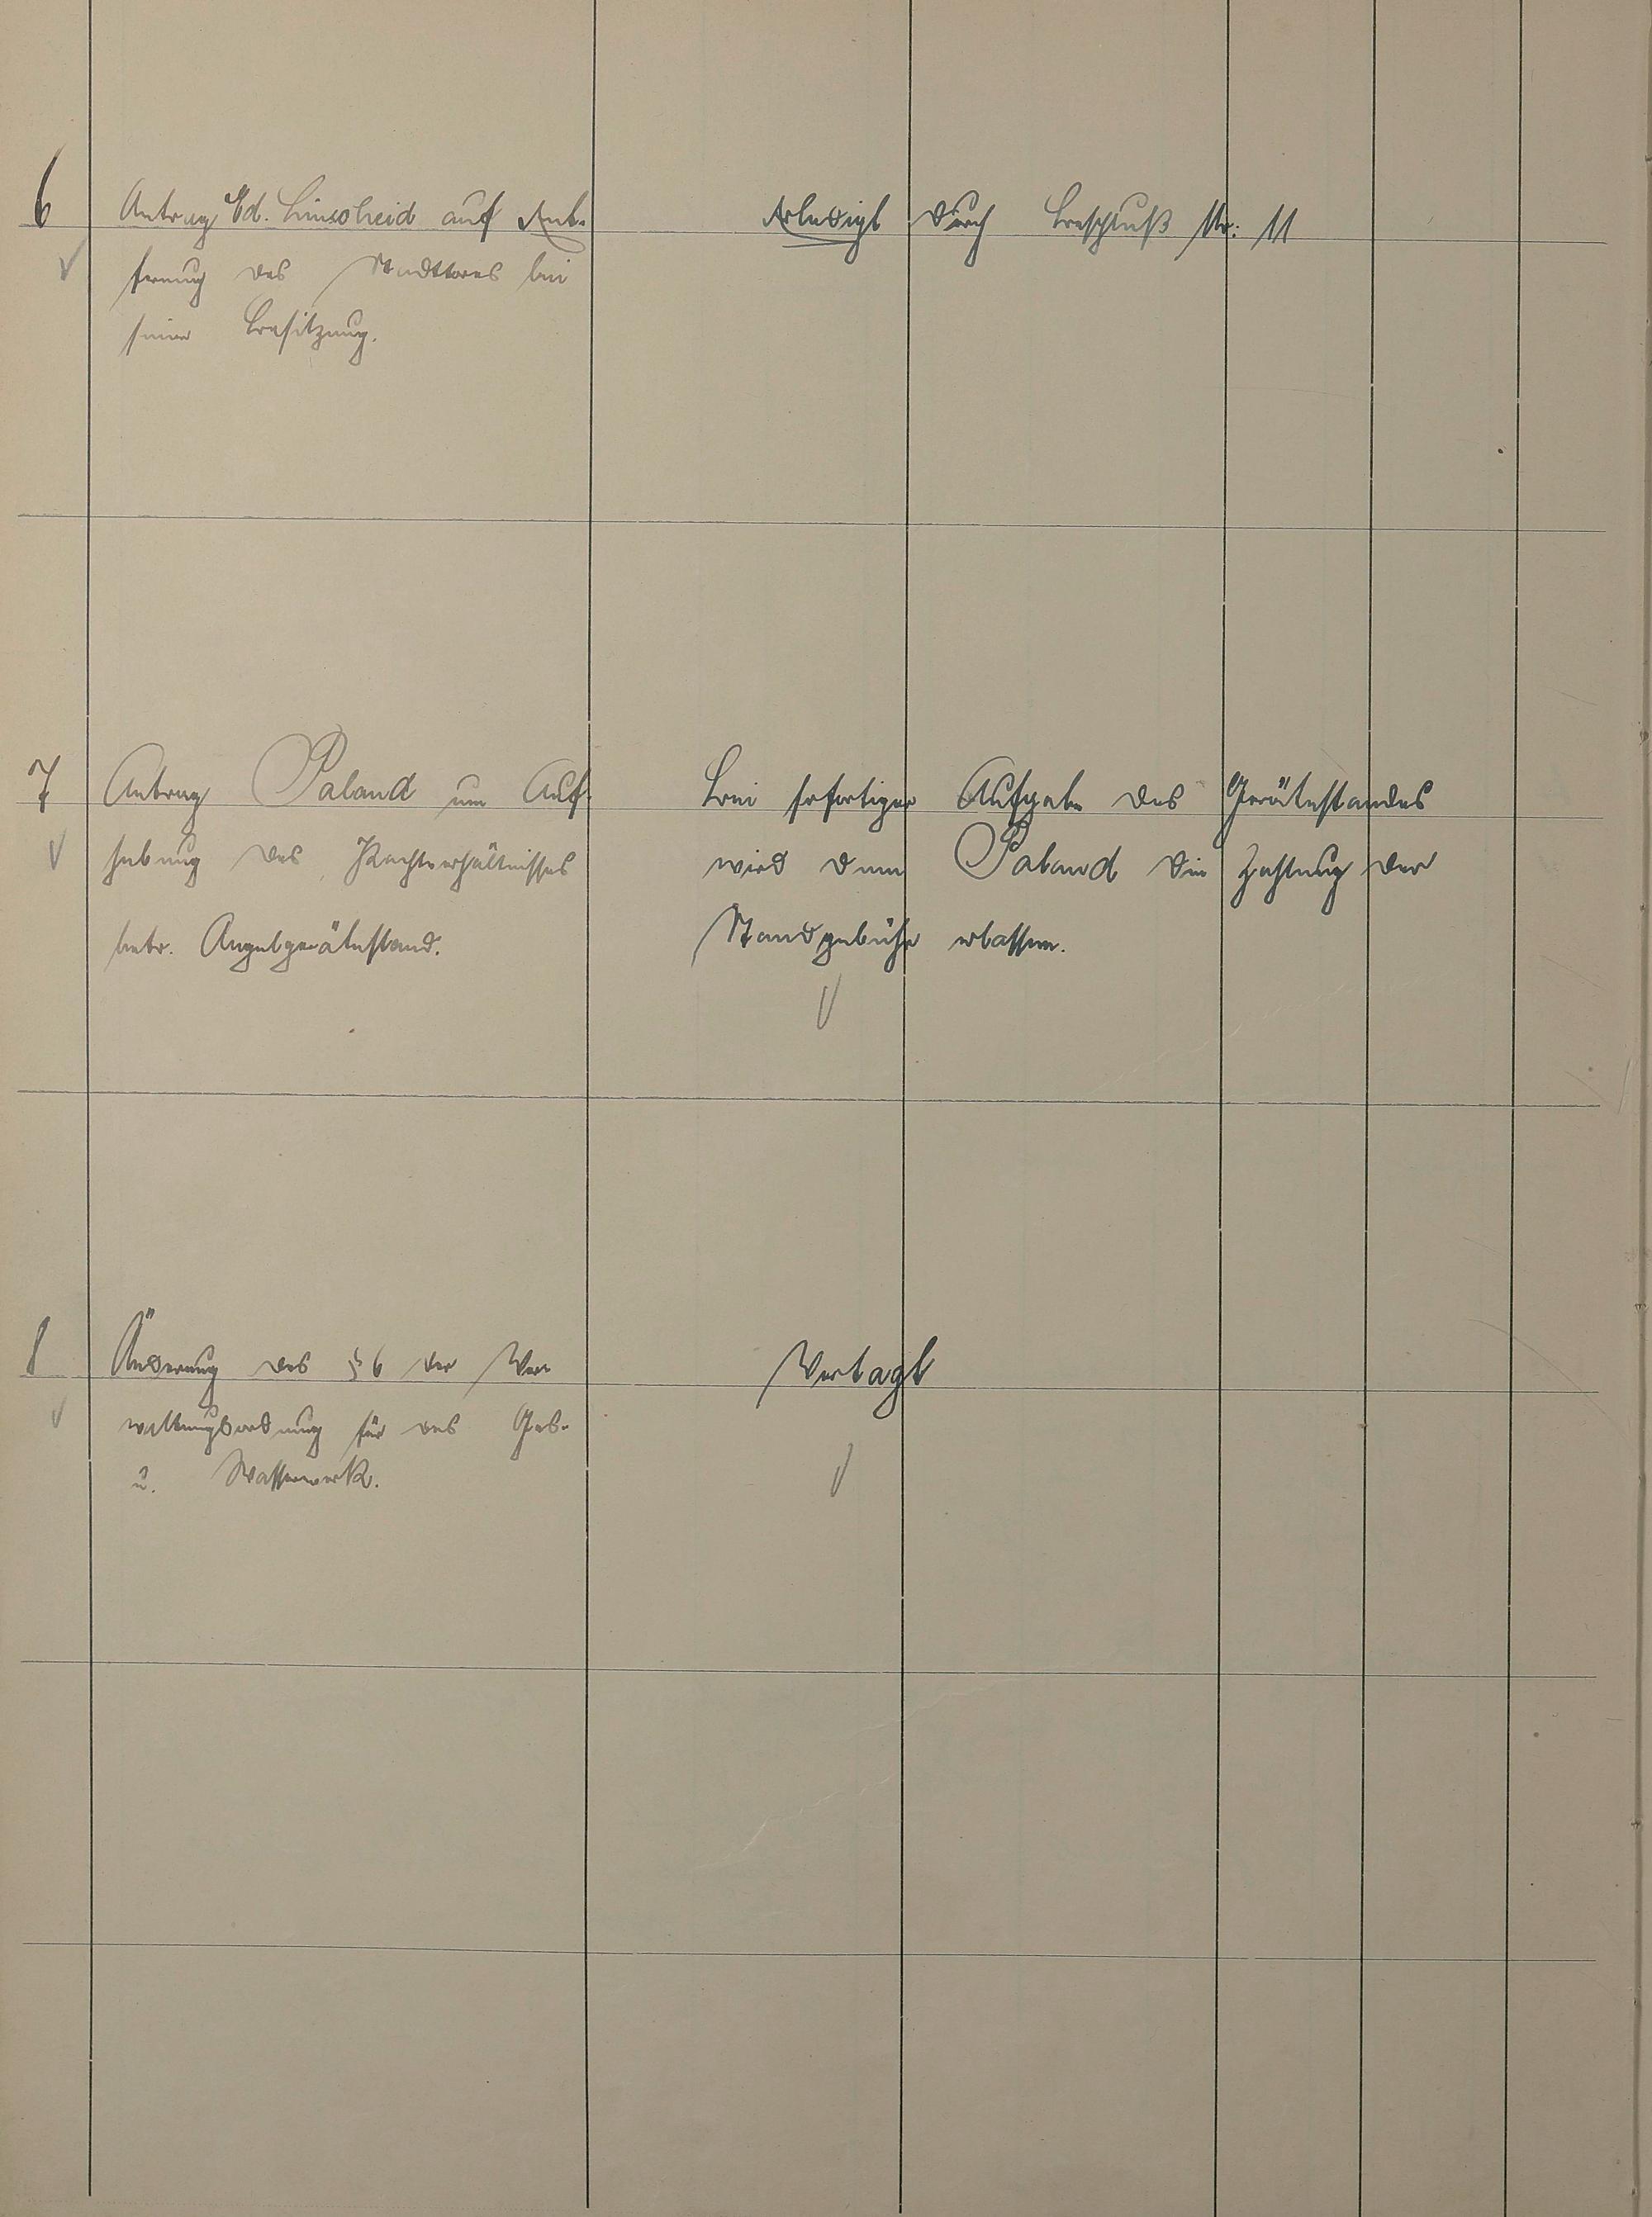 6 Antrag Ed. Linscheid auf Ent-
fernung des Stadttores bei
seiner Besitzung.
Erledigt durch Beschluß Nr. 11
7 Antrag Paland um Auf-
hebung des Pachtverhältnisses
betr. Angelgerätestand.
Bei sofortiger Aufgabe des Gerätestandes
wird dem Paland die Zahlung der
Standgebühr erlassen.
8 Änderung des § 6 der Ver-
waltungsordnung für das Gas-
u. Wasserwerk.
Vertagt